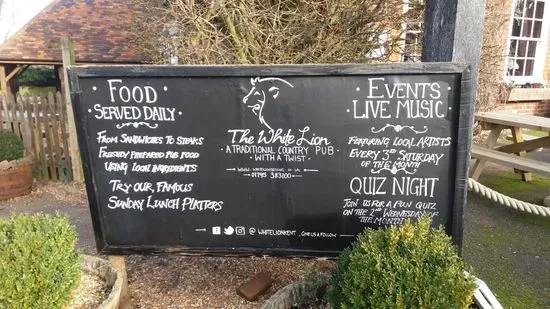 FOOD
SERVED DAILY
FROM SANDWICHES TO STEAKS
FRESHLY PREPARED PUB FOOD
USING LOCAL INGREDIENTS
TRY OUR FAMOUS
SUNDAY LUNCH PLATTERS
The White Lion
A TRADITIONAL COUNTRY PUB
WITH A TWIST
EVENTS
LIVE MUSIC
FEATURING LOCAL ARTISTS
EVERY 3RD SATURDAY
OF THE MONTH
QUIZ NIGHT
JOIN US FOR A FUN QUIZ
ON THE 2ND WEDNESDAY OF
@WHITELIONKENT, GIVE US A FOLLOW